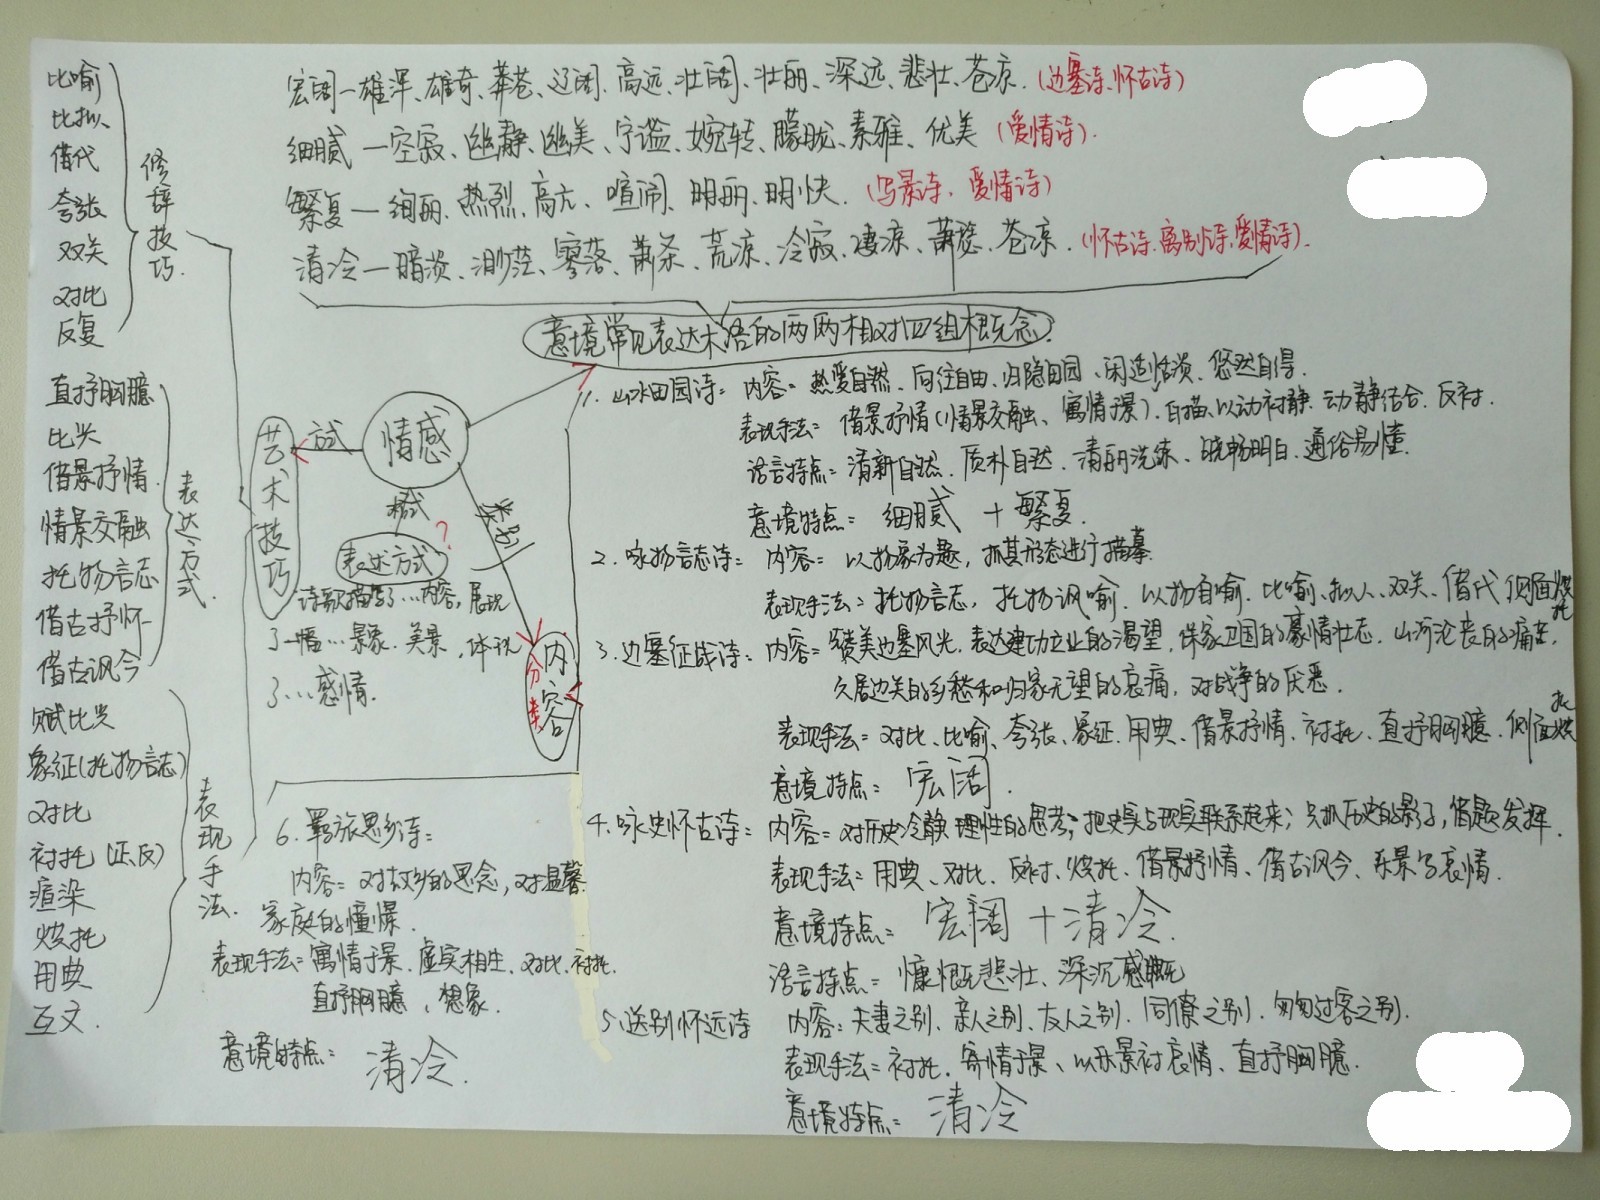 比喻
比拟、
借代
夸张
双关
对比
反复
修辞技巧.
直抒胸臆
比兴
借景抒情.
情景交融
托物言志
借古抒怀
借古讽今
表达方式.
赋比兴
象征(托物言志)
对比
衬托(正、反)
渲染
烘托
用典
互文.
表现手法.
宏阔—雄浑、雄奇、莽苍、辽阔、高远、壮阔、壮丽、深远、悲壮、苍凉.(边塞诗、怀古诗)
细腻—空寂、幽静、幽美、宁谧、婉转、朦胧、素雅、优美(爱情诗).
繁复—绚丽、热烈、高亢、喧闹、明丽、明快.(写景诗、爱情诗)
清冷—暗淡、渺茫、寥落、萧条、荒凉、冷寂、凄凉、萧瑟、苍凉.(怀古诗、离别诗、爱情诗).
意境常见表达术语的两两相对四组概念.
情感
艺术技巧
类别
表述方式?
诗歌描写了…内容,展现
了一幅…景象、美景,体现
了…感情.
内容
分类
1.山水田园诗: 内容=热爱自然、向往自由、归隐田园、闲适恬淡、悠然自得.
表现手法=借景抒情(情景交融、寓情于景).白描、以动衬静.动静结合.反衬.
语言特点=清新自然、质朴自然.清丽洗练、晓畅明白.通俗易懂.
意境特点=细腻+繁复.
2.咏物言志诗: 内容=以物象为题,抓其形态进行描摹.
表现手法=托物言志,托物讽喻.以物自喻.比喻、拟人、双关、借代 侧面烘托
3.边塞征战诗: 内容=赞美边塞风光.表达建功立业的渴望,保家卫国的豪情壮志.山河沦丧的痛苦,
久居边关的乡愁和归家无望的哀痛,对战争的厌恶.
表现手法=对比、比喻、夸张、象征.用典、借景抒情.衬托.直抒胸臆.侧面烘托
意境特点=宏阔.
4.咏史怀古诗: 内容=对历史冷静理性的思考;把史实与现实联系起来;只抓历史的影子,借题发挥.
表现手法=用典、对比、反衬、烘托.借景抒情、借古讽今、乐景写哀情.
意境特点=宏阔+清冷.
语言特点=慷慨悲壮、深沉感慨
5.送别怀远诗 内容:夫妻之别、亲人之别、友人之别、同僚之别、匆匆过客之别.
表现手法=衬托.寄情于景、以乐景衬哀情、直抒胸臆.
意境特点=清冷
6.羁旅思乡诗:
内容=对故乡的思念,对温馨
家庭的憧憬.
表现手法=寓情于景.虚实相生、对比、衬托.
直抒胸臆、想象.
意境的特点=清冷.